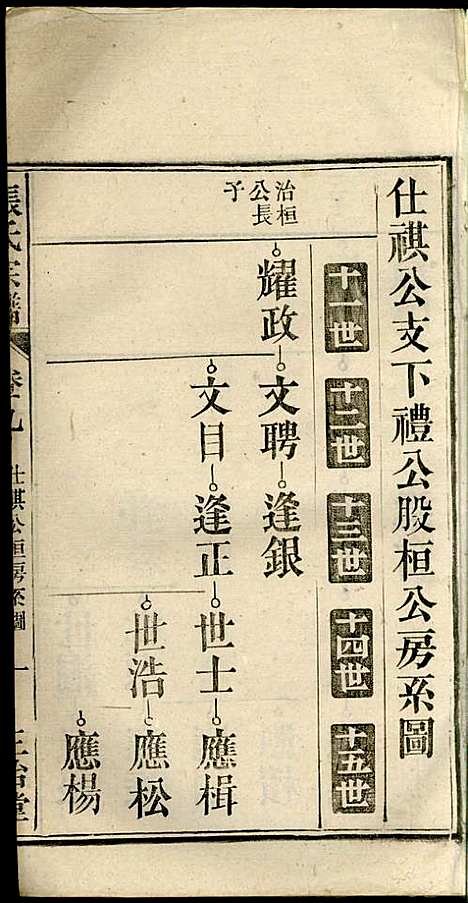 仕祺公支下禮公股桓公房系圖
十一世 十二世 十三世 十四世 十五世
治桓
公長
子
耀政 文聘 逢銀
文目 逢正 世士 應楫
世浩 應松
應楊
張氏宗譜 卷九 仕祺公桓房系圖 一